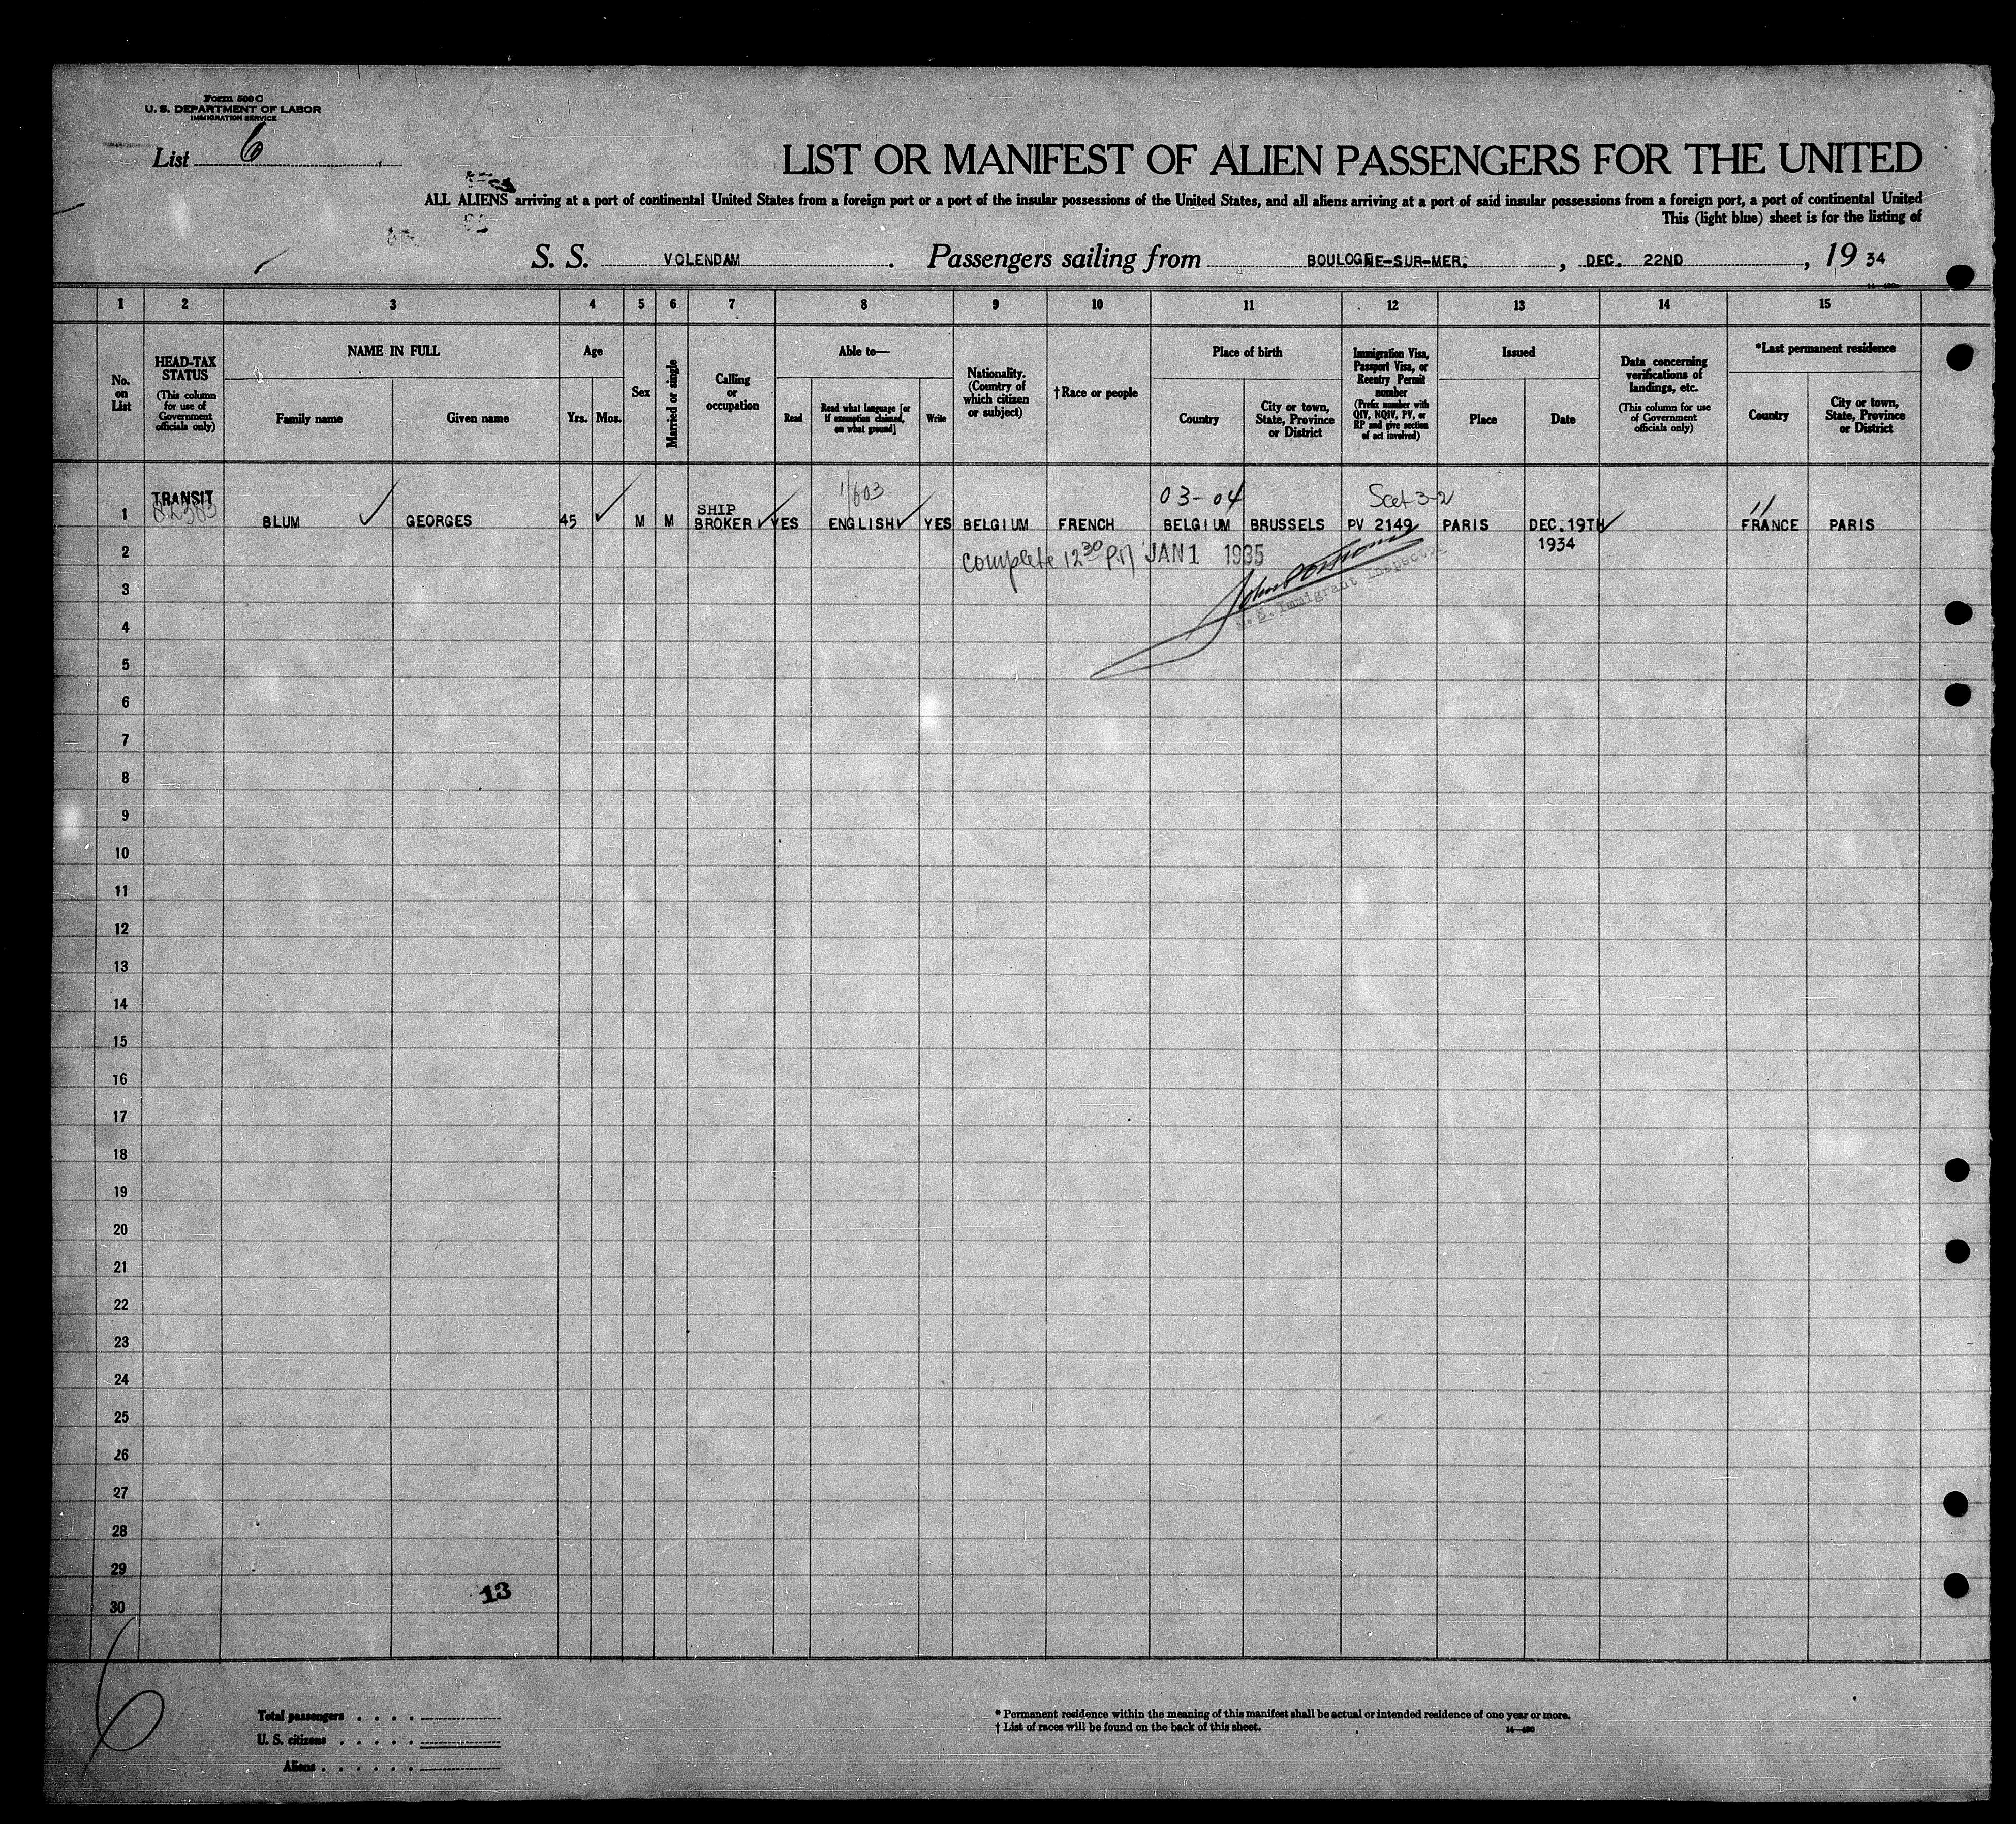 Form 500 C
U. S. DEPARTMENT OF LABOR
IMMIGRATION SERVICE
List 6
LIST OR MANIFEST OF ALIEN PASSENGERS FOR THE UNITED
ALL ALIENS arriving at a port of continental United States from a foreign port or a port of the insular possessions of the United States, and all aliens arriving at a port of said insular possessions from a foreign port, a port of continental United
This (light blue) sheet is for the listing of
S. S. VOLENDAM. Passengers sailing from BOULOGNE-SUR-MER. , DEC. 22ND , 19 34
1 2 3 4 5 6 7 8 9 10 11 12 13 14 15
No. on List
HEAD-TAX STATUS
(This column for use of Government officials only)
NAME IN FULL
Family name
Given name
Age
Yrs. Mos.
Sex
Married or single
Calling or occupation
Able to—
Read
Read what language [or if exemption claimed, on what ground]
Write
Nationality. (Country of which citizen or subject)
† Race or people
Place of birth
Country
City or town, State, Province or District
Immigration Visa, Passport Visa, or Reentry Permit number
(Prefix number with QIV, NQIV, PV, or RP and give section of act involved)
Issued
Place
Date
Data concerning verifications of landings, etc.
(This column for use of Government officials only)
*Last permanent residence
Country
City or town, State, Province or District
1603 03-04 Sect 3-2 11
TRANSIT
SHIP
1 BLUM GEORGES 45 M M BROKER YES ENGLISH YES BELGIUM FRENCH BELGIUM BRUSSELS PV 2149 PARIS DEC. 19TH FRANCE PARIS
1934
2 complete 12 30 P.M JAN 1 1935
U. S. Immigrant Inspector
3
4
5
6
7
8
9
10
11
12
13
14
15
16
17
18
19
20
21
22
23
24
25
26
27
28
29
13
30
6
Total passengers . . . .
U. S. citizens . . . . .
Aliens . . . . . .
* Permanent residence within the meaning of this manifest shall be actual or intended residence of one year or more.
† List of races will be found on the back of this sheet.
14—480